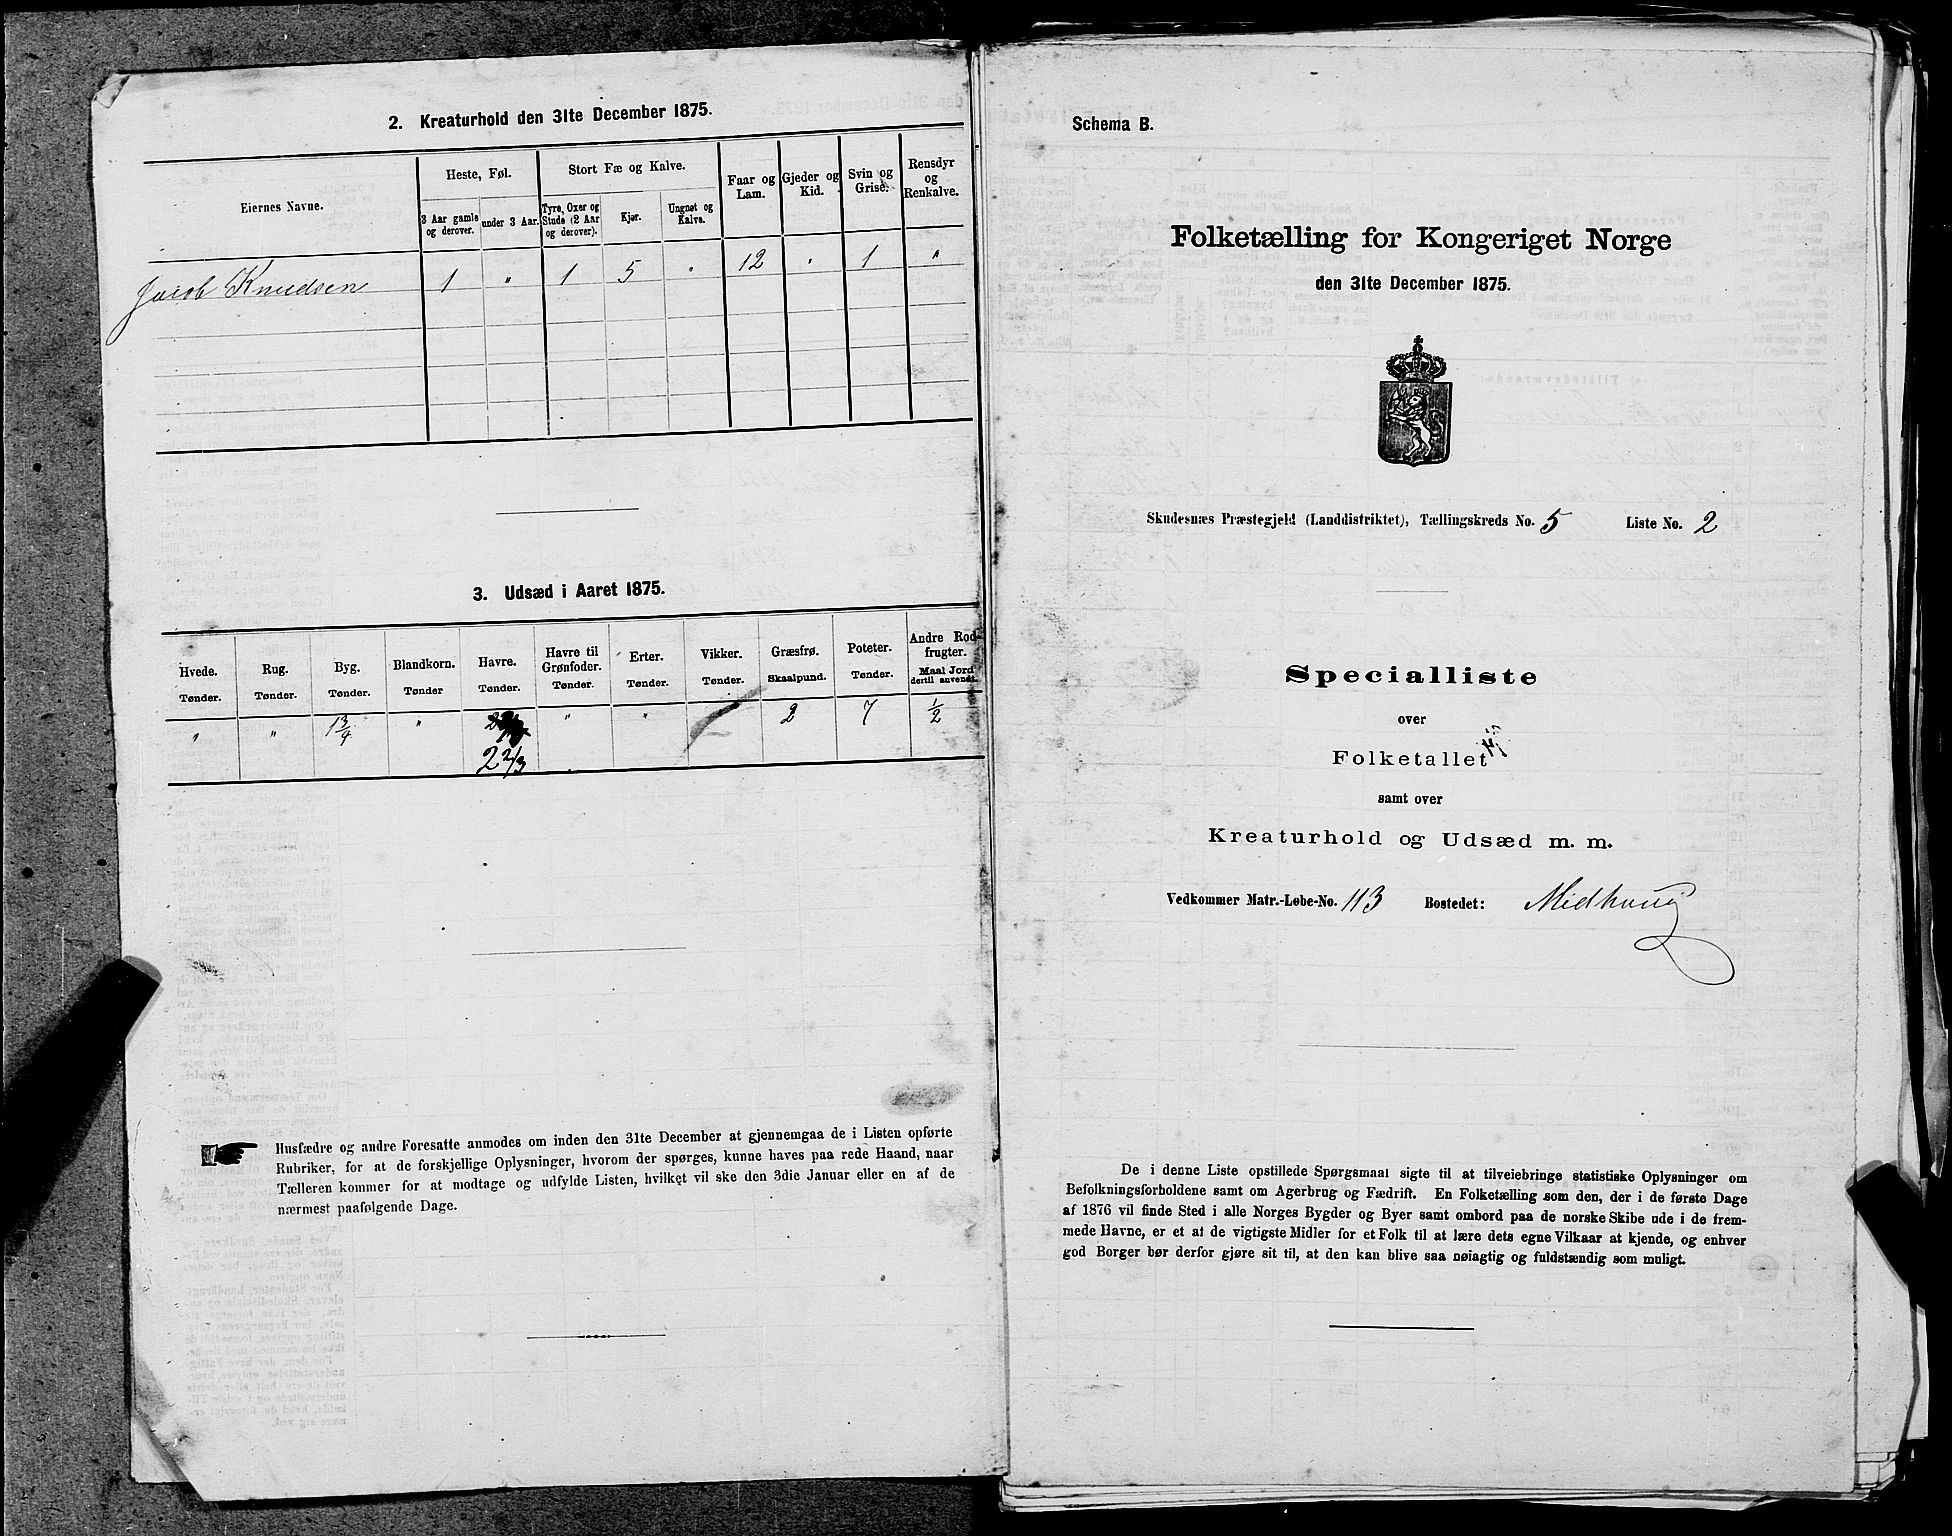 2. Kreaturhold den 31te December 1875.
Eiernes Navne.
Heste, Føl.
Stort Fæ og Kalve.
Faar og Lam.
Gjeder og Kid.
Svin og Grise.
Rensdyr og Renkalve.
3 Aar gamle og derover.
under 3 Aar.
Tyre, Oxer og Stude (2 Aar og derover).
Kjør.
Ungnøt og Kalve.
Jacob Knudsen 1 " 1 5 " 12 " 1 "
3. Udsæd i Aaret 1875.
Hvede. Rug. Byg. Blandkorn. Havre. Havre til Grønfoder. Erter. Vikker. Græsfrø. Poteter. Andre Rodfrugter.
Tønder. Tønder. Tønder. Tønder Tønder. Tønder. Tønder. Tønder. Skaalpund. Tønder. Maal Jord dertil anvendt.
" " 1 3/4 " " " 2 7 1/2
2 2/3
Husfædre og andre Foresatte anmodes om inden den 31te December at gjennemgaa de i Listen opførte
Rubriker, for at de forskjellige Oplysninger, hvorom der spørges, kunne haves paa rede Haand, naar
Tælleren kommer for at modtage og udfylde Listen, hvilket vil ske den 3die Januar eller en af de
nærmest paafølgende Dage.
Schema B.
Folketælling for Kongeriget Norge
den 31te December 1875.
Skudesnæs Præstegjeld (Landdistriktet), Tællingskreds No. 5 Liste No. 2
Specialliste
over
Folketallet
samt over
Kreaturhold og Udsæd m. m.
Vedkommer Matr.-Løbe-No. 113 Bostedet: Midhaug
De i denne Liste opstillede Spørgsmaal sigte til at tilveiebringe statistiske Oplysninger om
Befolkningsforholdene samt om Agerbrug og Fædrift. En Folketælling som den, der i de første Dage
af 1876 vil finde Sted i alle Norges Bygder og Byer samt ombord paa de norske Skibe ude i de frem-
mede Havne, er et af de vigtigste Midler for et Folk til at lære dets egne Vilkaar at kjende, og enhver
god Borger bør derfor gjøre sit til, at den kan blive saa nøiagtig og fuldstændig som muligt.